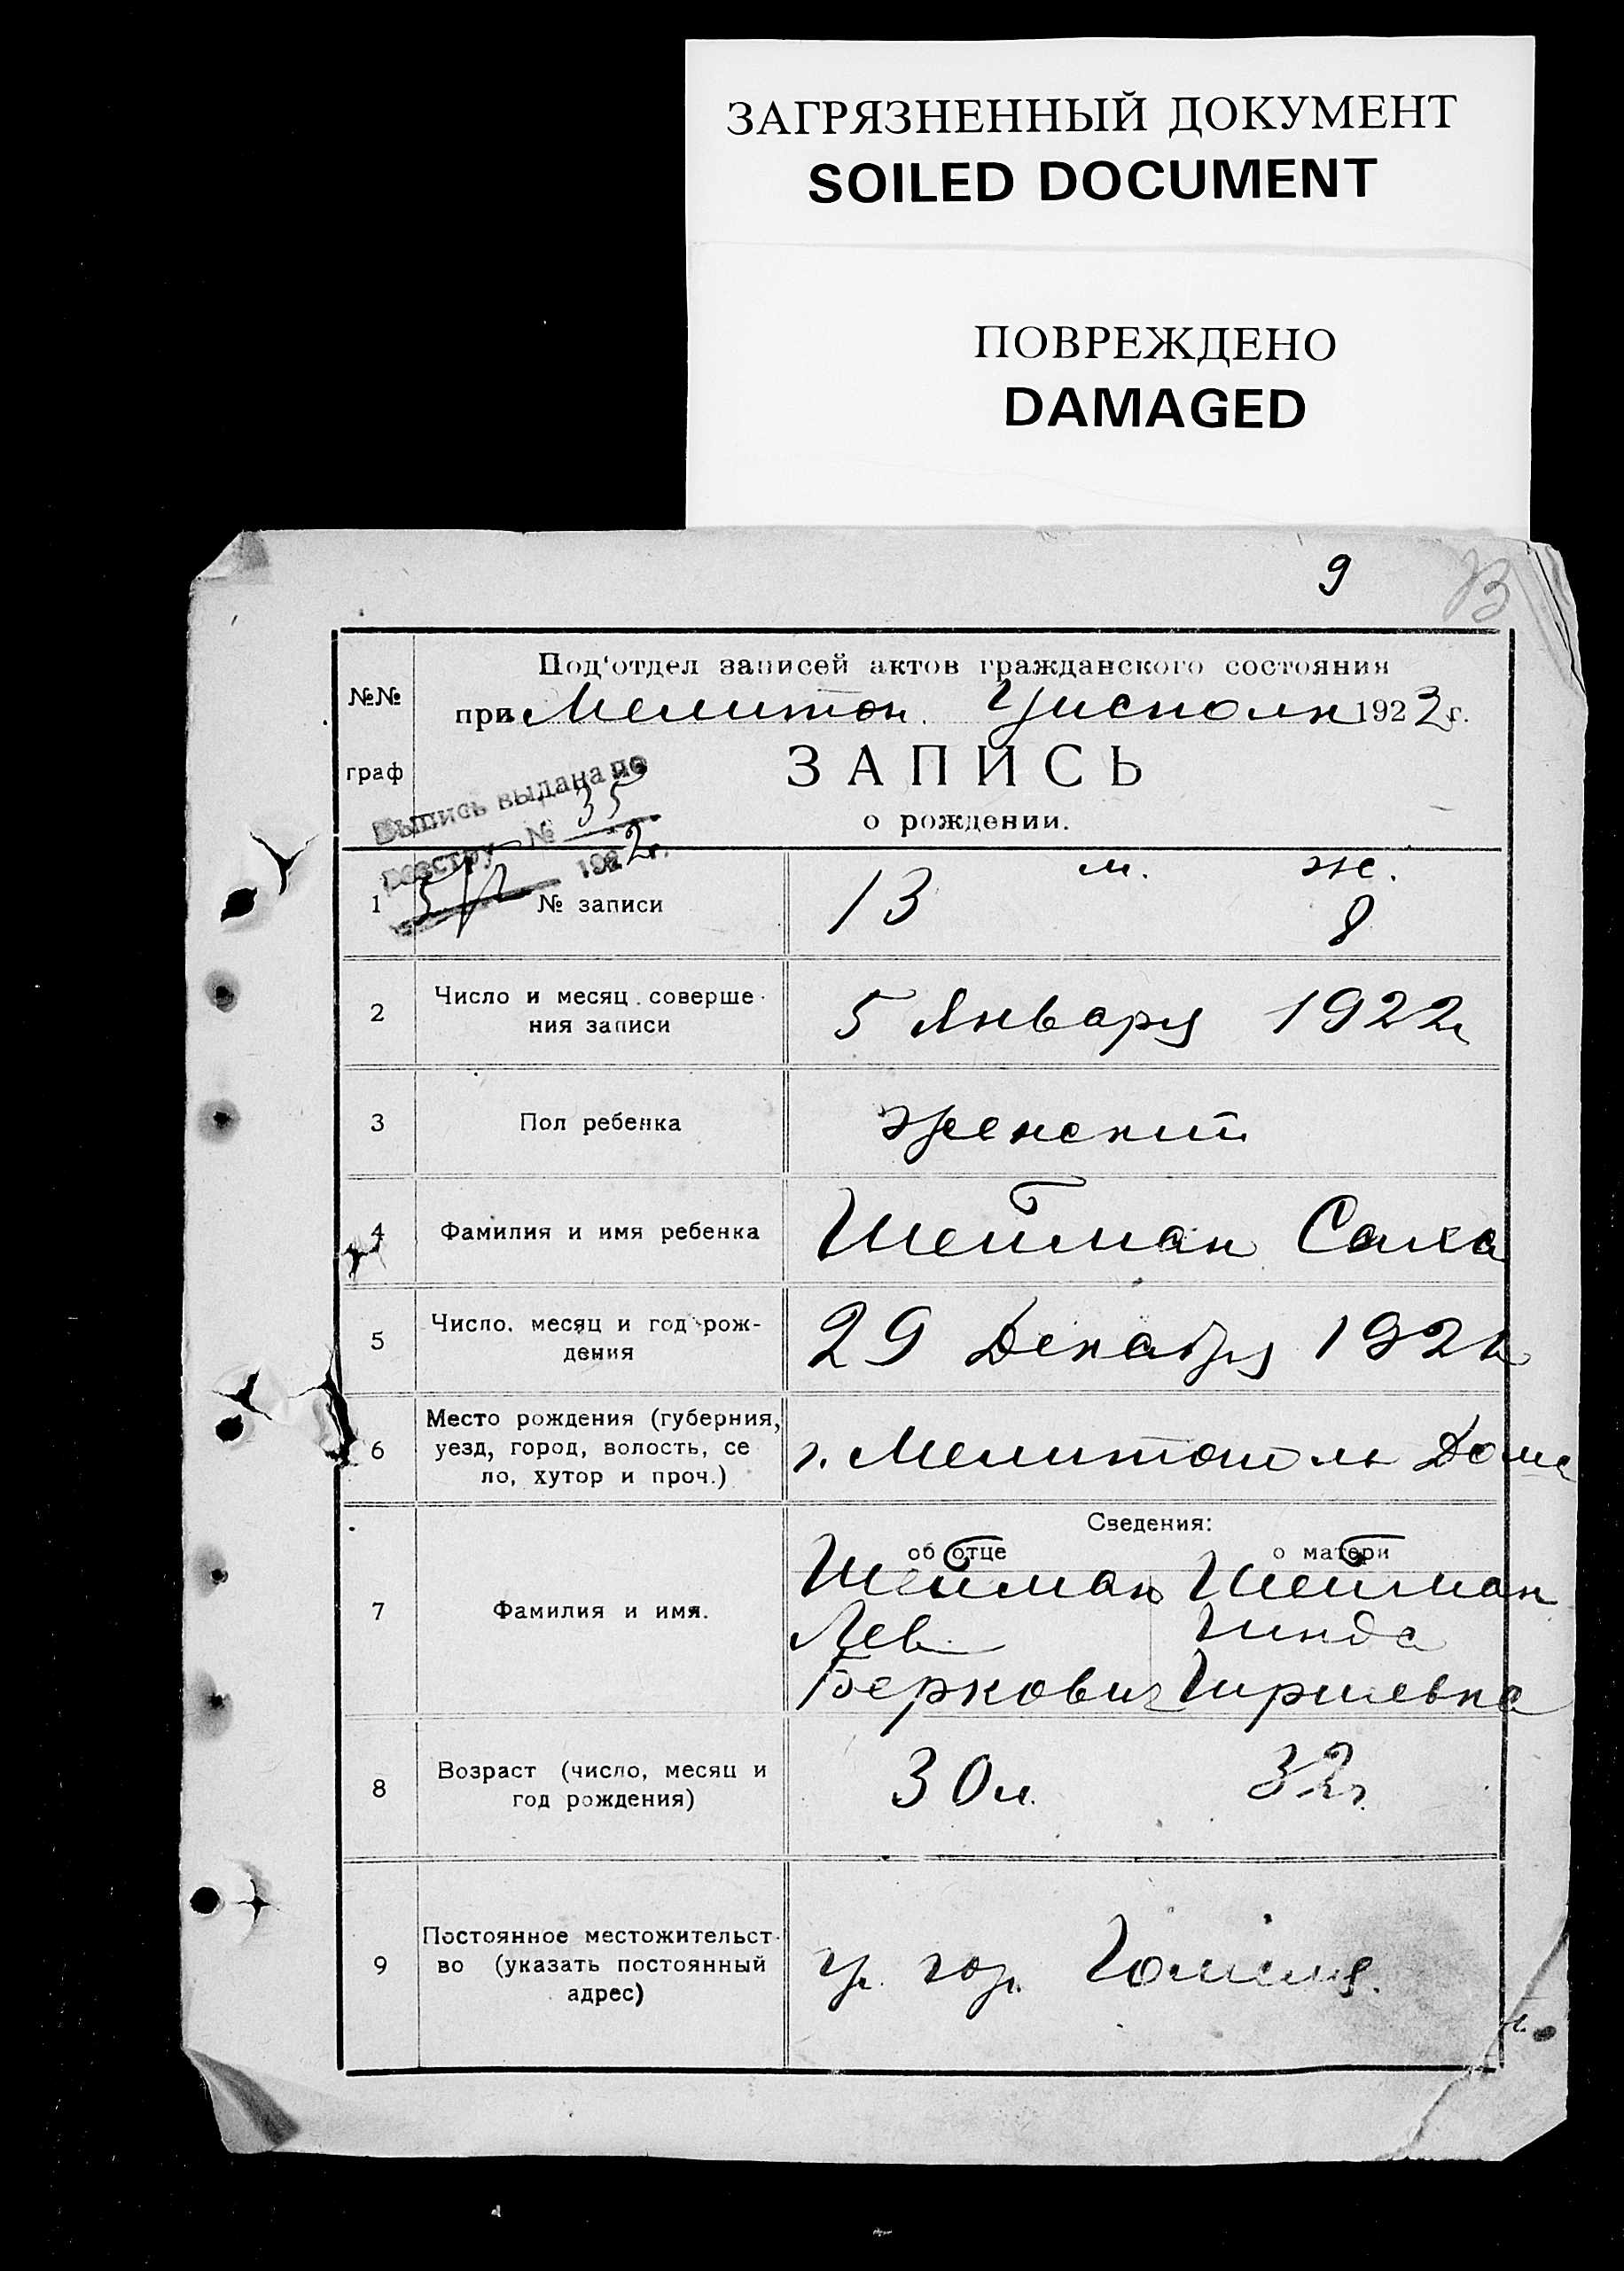 ЗАГРЯЗНЕННЫЙ ДОКУМЕНТ
SOILED DOCUMENT
ПОВРЕЖДЕНО
DAMAGED
9
В
№№
граф
Под'отдел записей актов гражданского состояния
при Мелитоп. Уисполк 1922 г.
ЗАПИСЬ
о рождении.
Выпись выдана по
реестру № 35
5/I 1922 г.
1 № записи 13 м. ж. 8
2 Число и месяц соверше-
ния записи
5 Января 1922 г
3 Пол ребенка женский
4 Фамилия и имя ребенка Шейман Салха
5 Число, месяц и год рож-
дения
29 Декабря 1921 г
6 Место рождения (губерния,
уезд, город, волость, се
ло, хутор и проч.)
г. Мелитополь Дома
Сведения:
об отце о матери
7 Фамилия и имя.
Шейман Шейман
Лев Гинда
Беркович Гиршевна
8 Возраст (число, месяц и
год рождения)
30 л. 32 г.
9 Постоянное местожительст-
во (указать постоянный
адрес)
гр. гор. Гомеля.